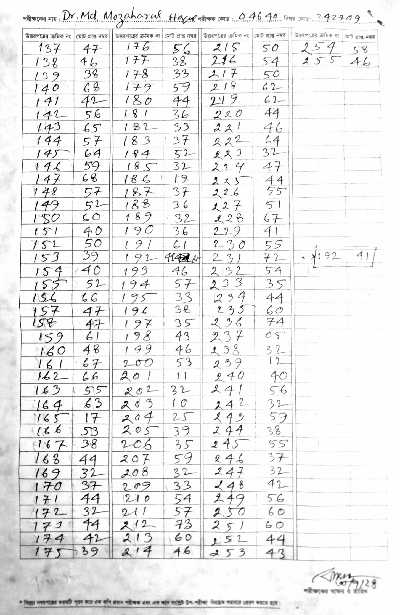 পরীক্ষকের নাম : Dr. Md. Mozaharul পরীক্ষক কোড : বিষয় কোড :
উত্তরপত্রের ক্রমিক নং মোট প্রাপ্ত নম্বর উত্তরপত্রের ক্রমিক নং মোট প্রাপ্ত নম্বর উত্তরপত্রের ক্রমিক নং মোট প্রাপ্ত নম্বর উত্তরপত্রের ক্রমিক নং মোট প্রাপ্ত নম্বর
137 47 176 56 215 50 254 38
138 46 177 38 216 54 255 46
139 38 178 33 217 50
140 68 179 59 218 62
141 42 180 44 219 62
142 56 181 36 220 44
143 65 182 33 221 46
144 57 183 37 222 64
145 64 184 52 223 32
146 59 185 32 224 47
147 68 186 19 225 44
148 57 187 37 226 55
149 52 188 36 227 51
150 60 189 32 228 67
151 40 190 36 229 41
152 50 191 61 230 55
153 39 192 231 72 192 41
154 40 193 46 232 54
155 52 194 57 233 35
156 66 195 33 234 44
157 47 196 38 235 60
158 47 197 35 236 74
159 61 198 43 237 05
160 48 199 46 238 32
161 67 200 53 239 12
162 66 201 11 240 40
163 55 202 32 241 56
164 63 203 10 242 32
165 17 204 25 243 59
166 53 205 39 244 38
167 38 206 35 245 55
168 44 207 59 246 37
169 32 208 32 247 32
170 37 209 33 248 42
171 44 210 54 249 56
172 32 211 57 250 60
173 44 212 73 251 60
174 42 213 60 252 44
175 39 214 46 253 43
পরীক্ষকের স্বাক্ষর ও তারিখ